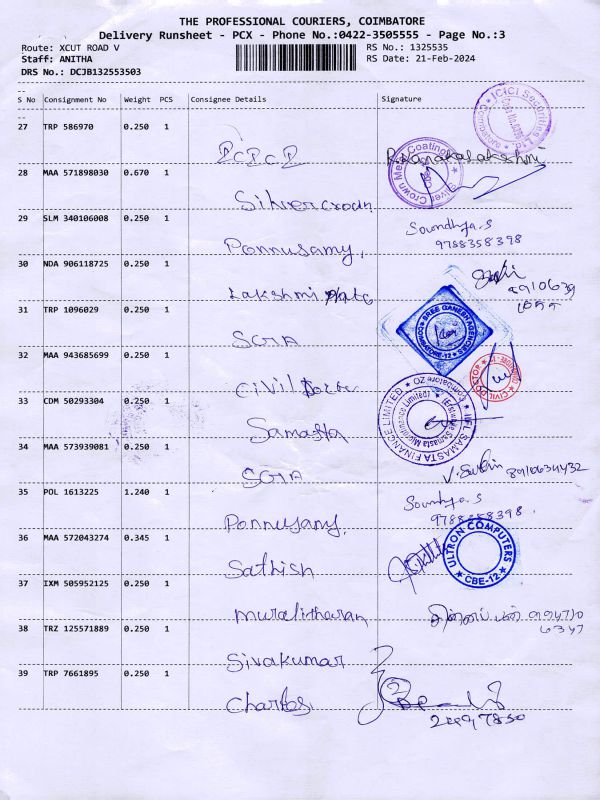 THE PROFESSIONAL COURIERS, COIMBATORE
Delivery Runsheet - PCX - Phone No.:0422-3505555 - Page No.:3
Route: XCUT ROAD V RS No.: 1325535
Staff: ANITHA RS Date: 21-Feb-2024
DRS No.: DCJB132553503
S No Consignment No Weight PCS Consignee Details Signature
ICICI Securities Ltd
27 TRP 586970 0.250 1
ICICI R. Kanakalakshmi
28 MAA 571898030 0.670 1
Silver Crown Metal Coatings
Silvercrown
29 SLM 340106008 0.250 1 Soundhya.S
Ponnusamy, 9788358398
30 NDA 906118725 0.250 1
Lakshmi
31 TRP 1096029 0.250 1
SREE GANESH AGENCIES
COIMBATORE-12
SGA
32 MAA 943685699 0.250 1
CIVIL DOCTOR
Civil Doctor
33 CDM 50293304 0.250 1
IIFL SAMASTA FINANCE LIMITED
(Erstwhile Samasta Microfinance Limited)
Coimbatore ZO
Samasta
34 MAA 573939081 0.250 1
SGA 8910634432
35 POL 1613225 1.240 1 Soundhya.S
Ponnusamy, 9788358398.
36 MAA 572043274 0.345 1
ULTRON COMPUTERS
CBE-12
Sathish
37 IXM 505952125 0.250 1
Muralitharan
38 TRZ 125571889 0.250 1
Sivakumar
39 TRP 7661895 0.250 1
Charles